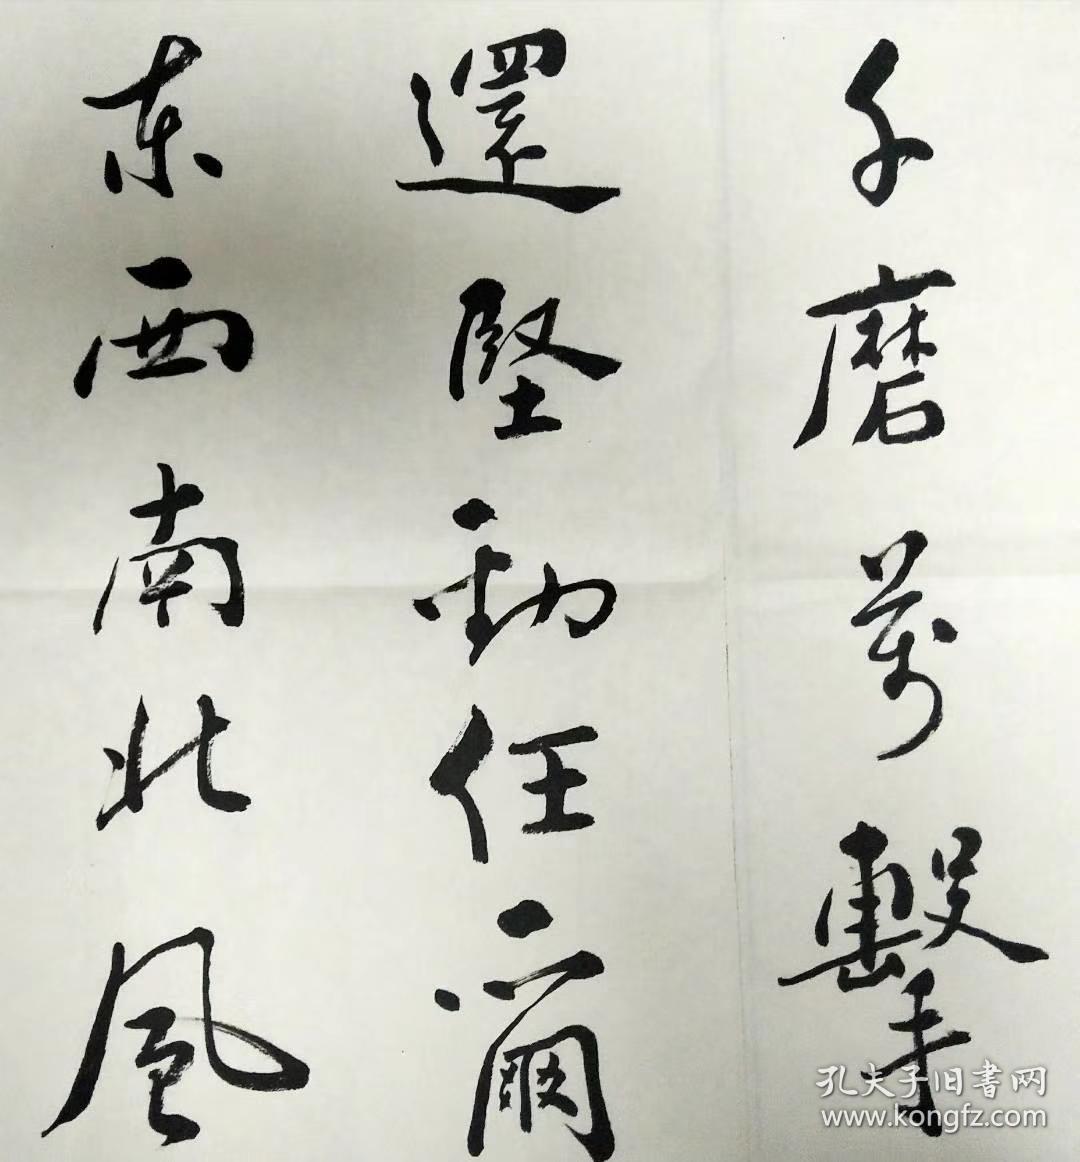 千磨萬擊
還堅勁任爾
东西南北风
孔夫子旧書网
www.kongfz.com